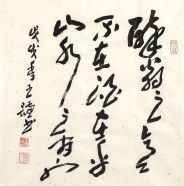 醉翁之意
不在酒在乎
山水之间
戊戌季之